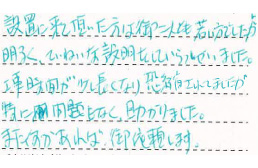 設置に来て頂いた方は御二人とも若い方でしたが
明るく、ていねいな説明をしていらっしゃいました。
工事時間が少し長くなり、恐縮
特に問題もなく、助かりました。
またなにかあれば、御依頼します。